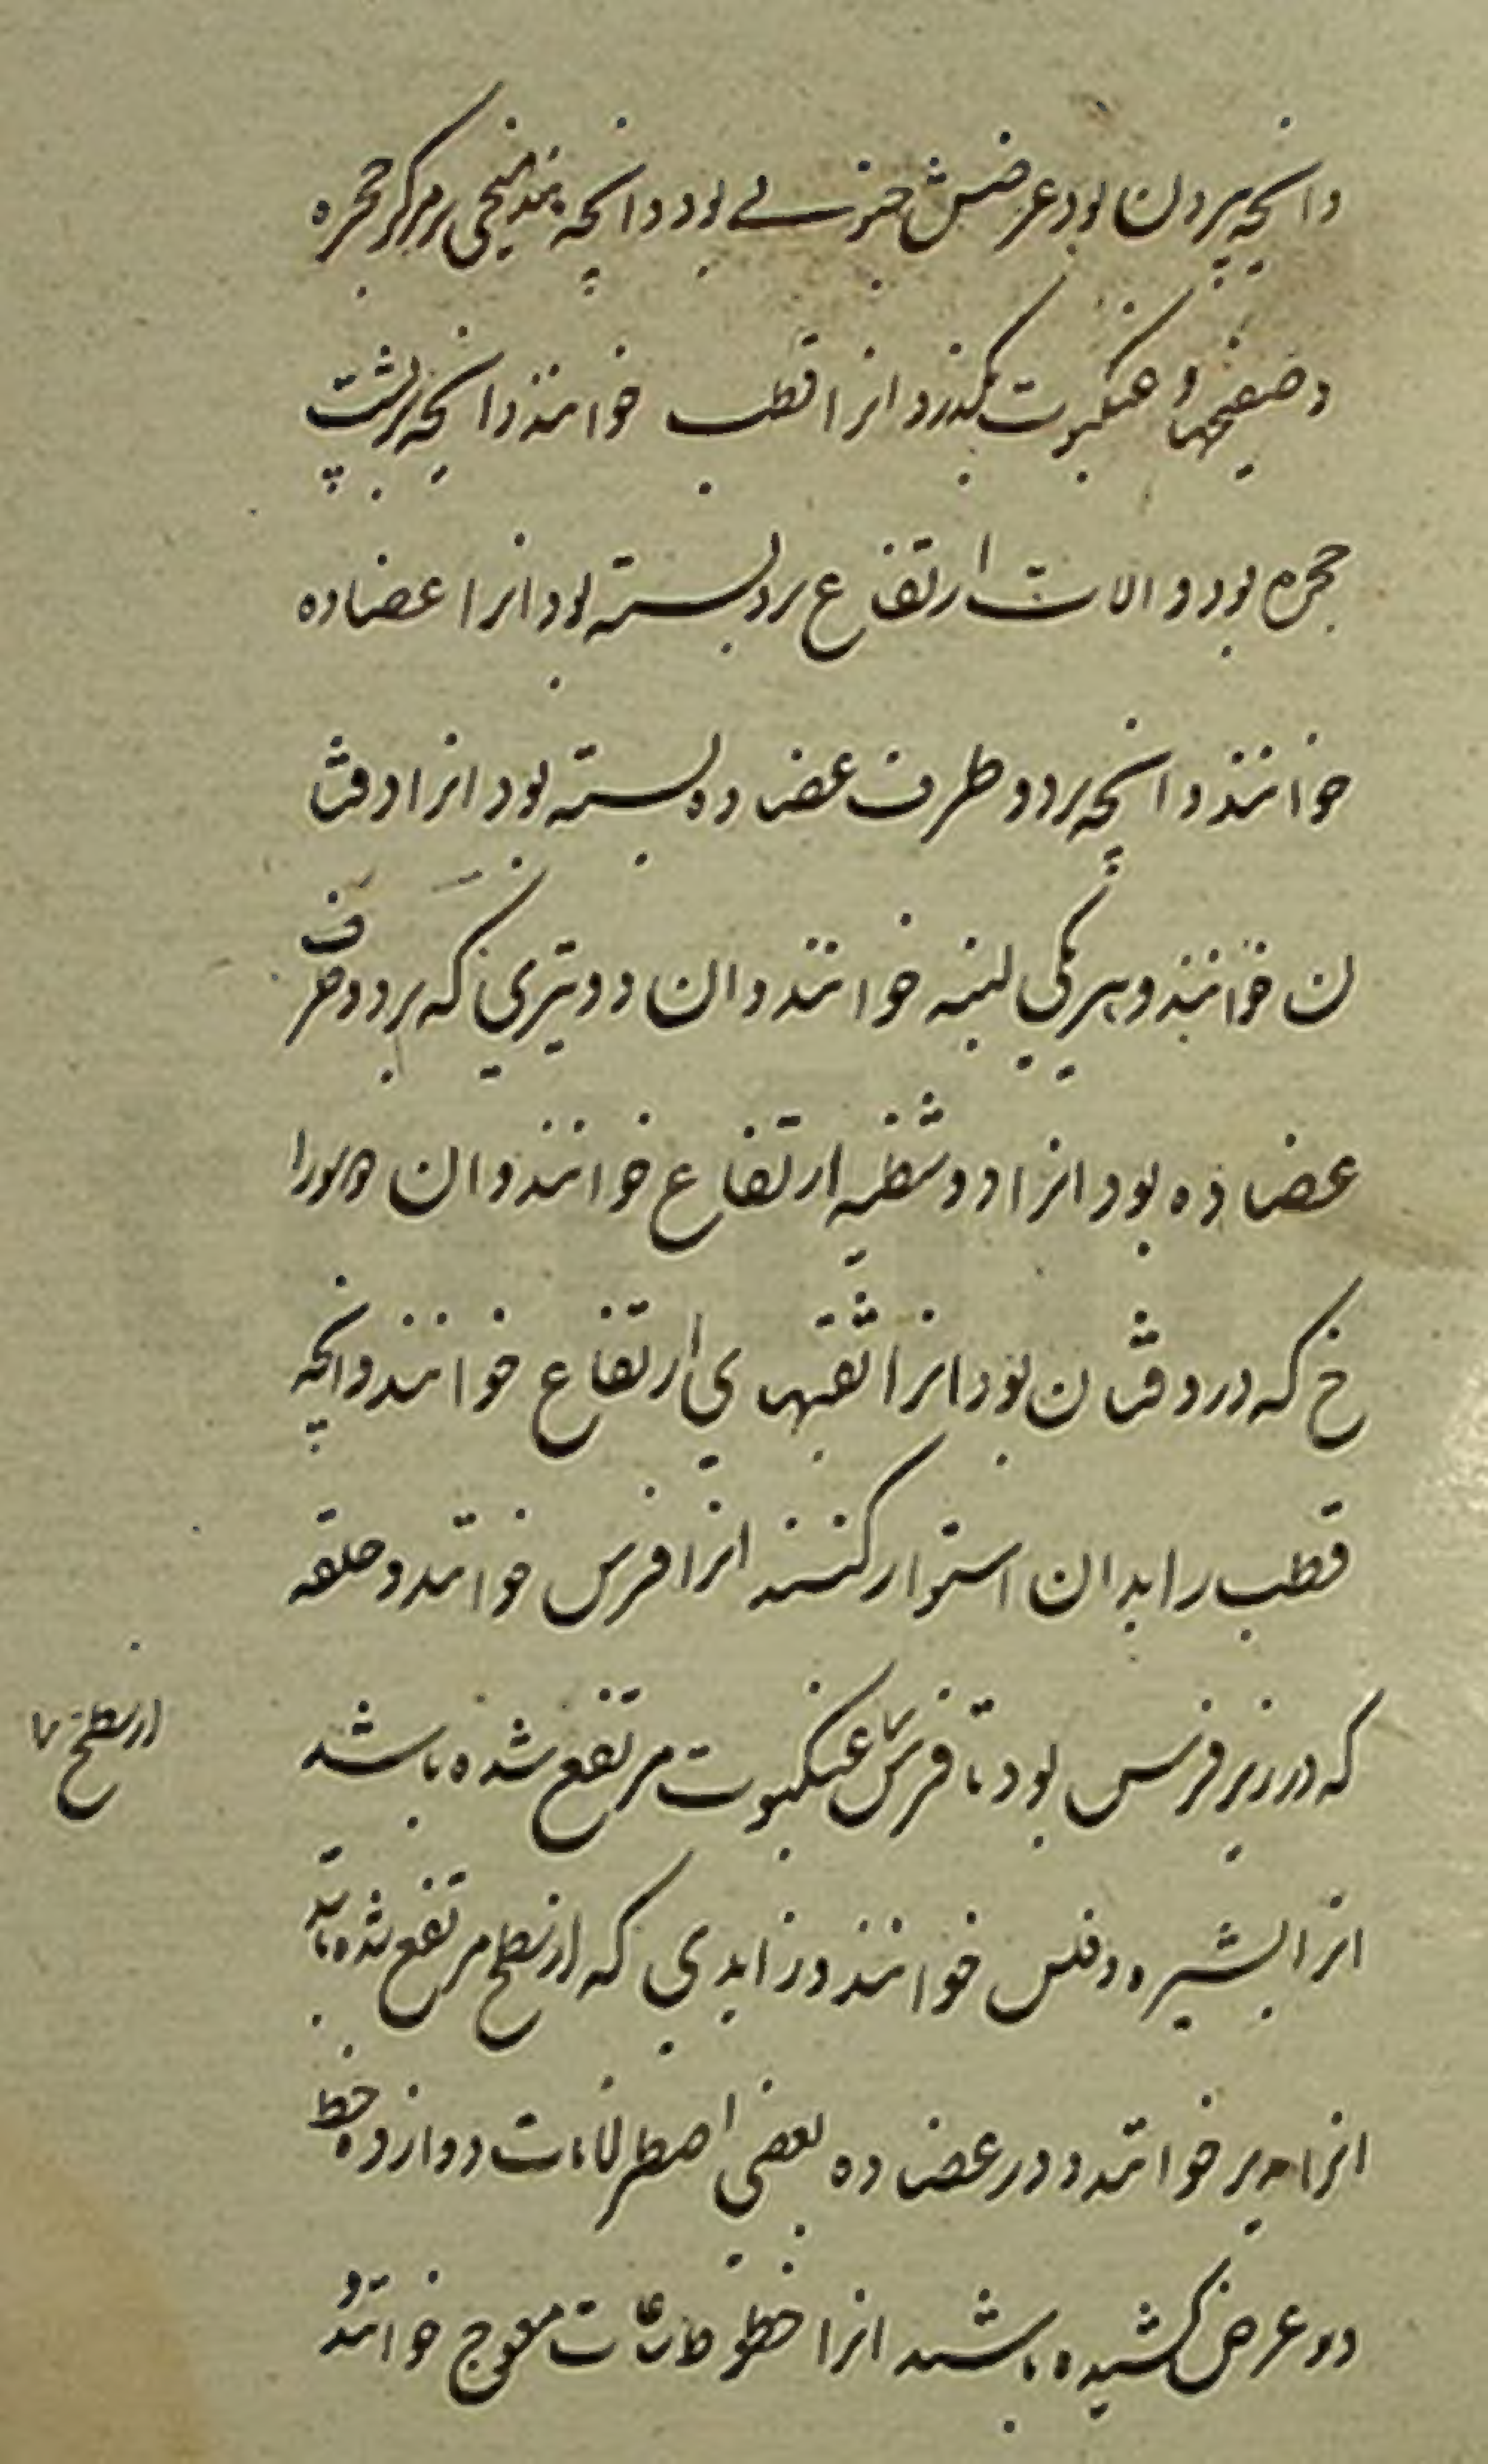 وانچه بیرون بود عرضش جنوبی بود وانچه بر مرکز حجره
و صفیحها و عنکبوت بگذرد انرا قطب خوانند وانچه بر پشت
حجره بود و الات ارتفاع برو بسته بود انرا عضاده
خوانند وانچه بر دو طرف عضاده بسته بود انرا دفتا
ن خوانند و هر یکی لبنه خوانند وان دو تیزی که بر دو طرف
عضاده بود انرا دو شظیه ارتفاع خوانند وان دو سورا
خ که در دفتان بود انرا ثقبهای ارتفاع خوانند وانچه
قطب را بدان استوار کنند انرا فرس خوانند و حلقه
که در زیر فرس بود تا فرس عنکبوت مرتفع شده باشد
از سطح
انرا پشیزه و فلس خوانند و زایدی که از سطح مرتفع شده باشد
انرا مدیر خوانند و در عضاده بعضی اصطرلابات دوازده خط
در عرض کشیده باشند انرا خطوط ساعات معوج خوانند و